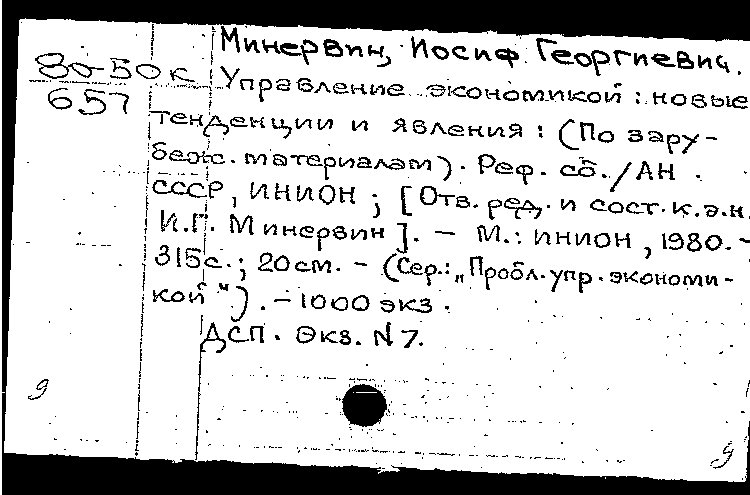 Минервин, Иосиф Георгиевич.
80-50к
657
Управление экономикой: новые
тенденции и явления: (По зару-
беж. материалам). Реф. сб. / АН
СССР, ИНИОН; [Отв. ред. и сост. к.э.н.
И.Г. Минервин]. – М.: ИНИОН, 1980. –
315с.; 20см. – (Сер.: „Пробл. упр. экономи-
кой“). – 1000 экз.
ДСП. Экз. N 7.